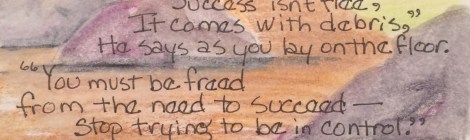 Success isn't
It comes with debris,"
He says as you lay on the floor.
"You must be freed
from the need to succeed —
Stop trying to be in control."